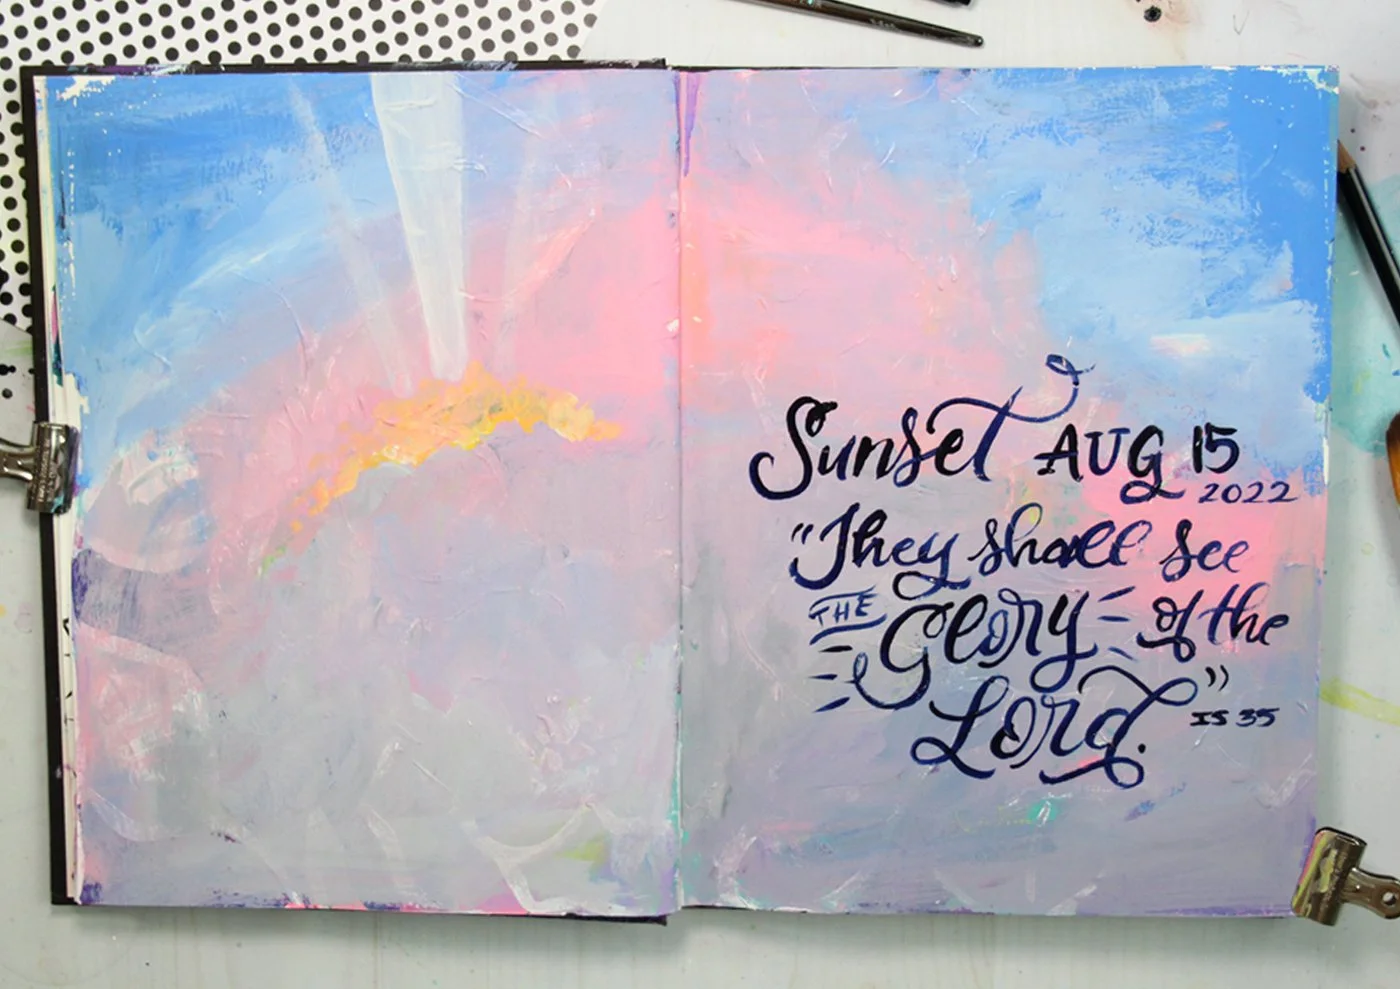 Sunset AUG 15
2022
"They shall see
THE Glory of the
Lord."
IS 35